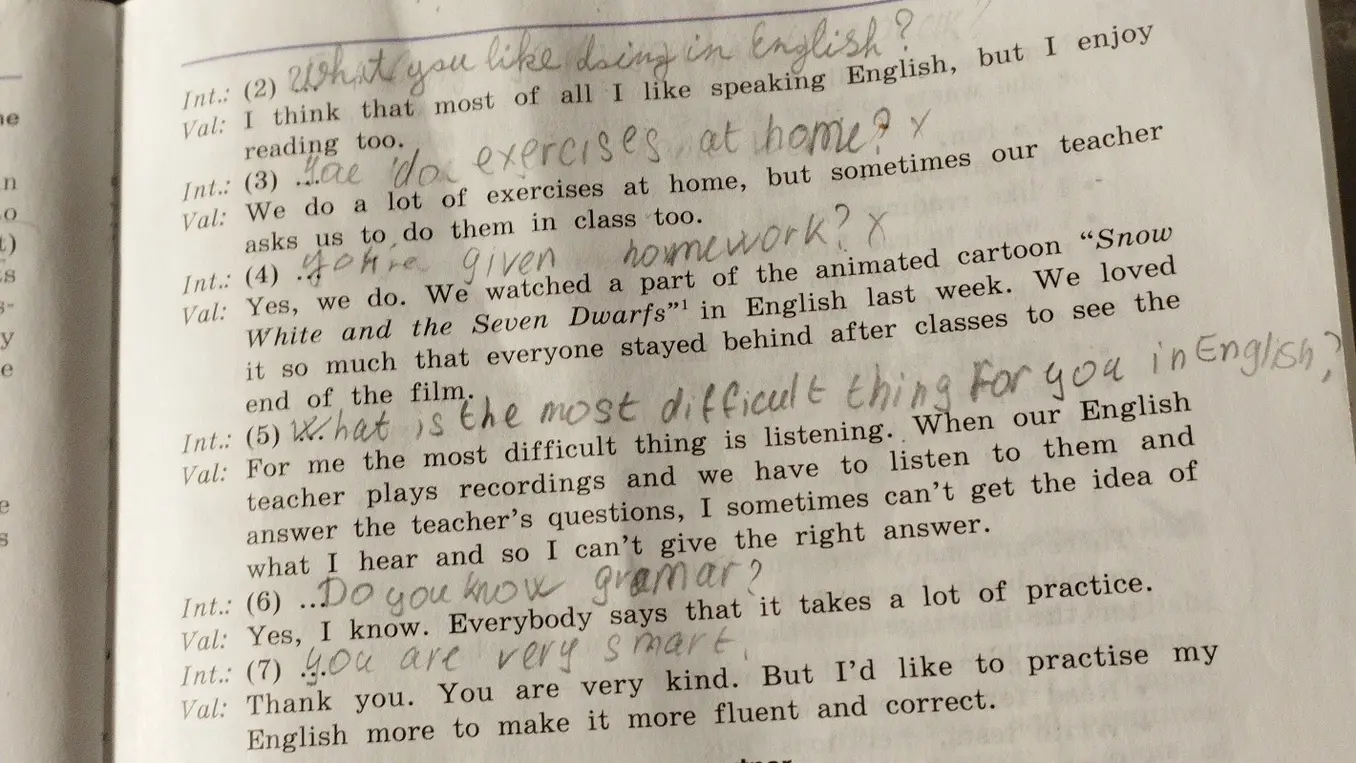 Int.: (2) What you like doing in English?
Val: I think that most of all I like speaking English, but I enjoy
reading too.
Int.: (3) ... You do exercises at home? x
Val: We do a lot of exercises at home, but sometimes our teacher
asks us to do them in class too.
Int.: (4) ... given homework? x
Val: Yes, we do. We watched a part of the animated cartoon “Snow
White and the Seven Dwarfs”¹ in English last week. We loved
it so much that everyone stayed behind after classes to see the
end of the film.
Int.: (5) ... What is the most difficult thing for you in English?
Val: For me the most difficult thing is listening. When our English
teacher plays recordings and we have to listen to them and
answer the teacher’s questions, I sometimes can’t get the idea of
what I hear and so I can’t give the right answer.
Int.: (6) ... Do you know gramar?
Val: Yes, I know. Everybody says that it takes a lot of practice.
Int.: (7) ... you are very smart.
Val: Thank you. You are very kind. But I’d like to practise my
English more to make it more fluent and correct.